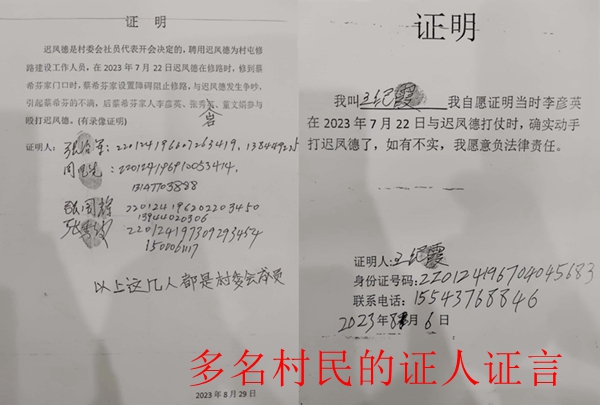 证 明
迟凤德是村委会社员代表开会决定的，聘用迟凤德为村屯修
路建设工作人员，在 2023 年 7 月 22 日迟凤德在修路时，修到蔡
希芬家门口时，蔡希芬家设置障碍阻止修路，与迟凤德发生争吵，
引起蔡希芬的不满，后蔡希芬家人李彦英、张秀、董文娟参与
殴打迟凤德。(有录像证明)
证明人：
220124196910053414
220124196202203450
13944020306
220124197309293454
以上这几人都是村委会成员
2023 年 8 月 29 日
证明
我叫王纪霞 我自愿证明当时李彦英
在 2023 年 7 月 22 日与迟凤德打仗时，确实动手
打迟凤德了，如有不实，我愿意负法律责任。
证明人:王纪霞
身份证号码:220124196704045683
联系电话:15543768846
2023 年 8 月 6 日
多名村民的证人证言